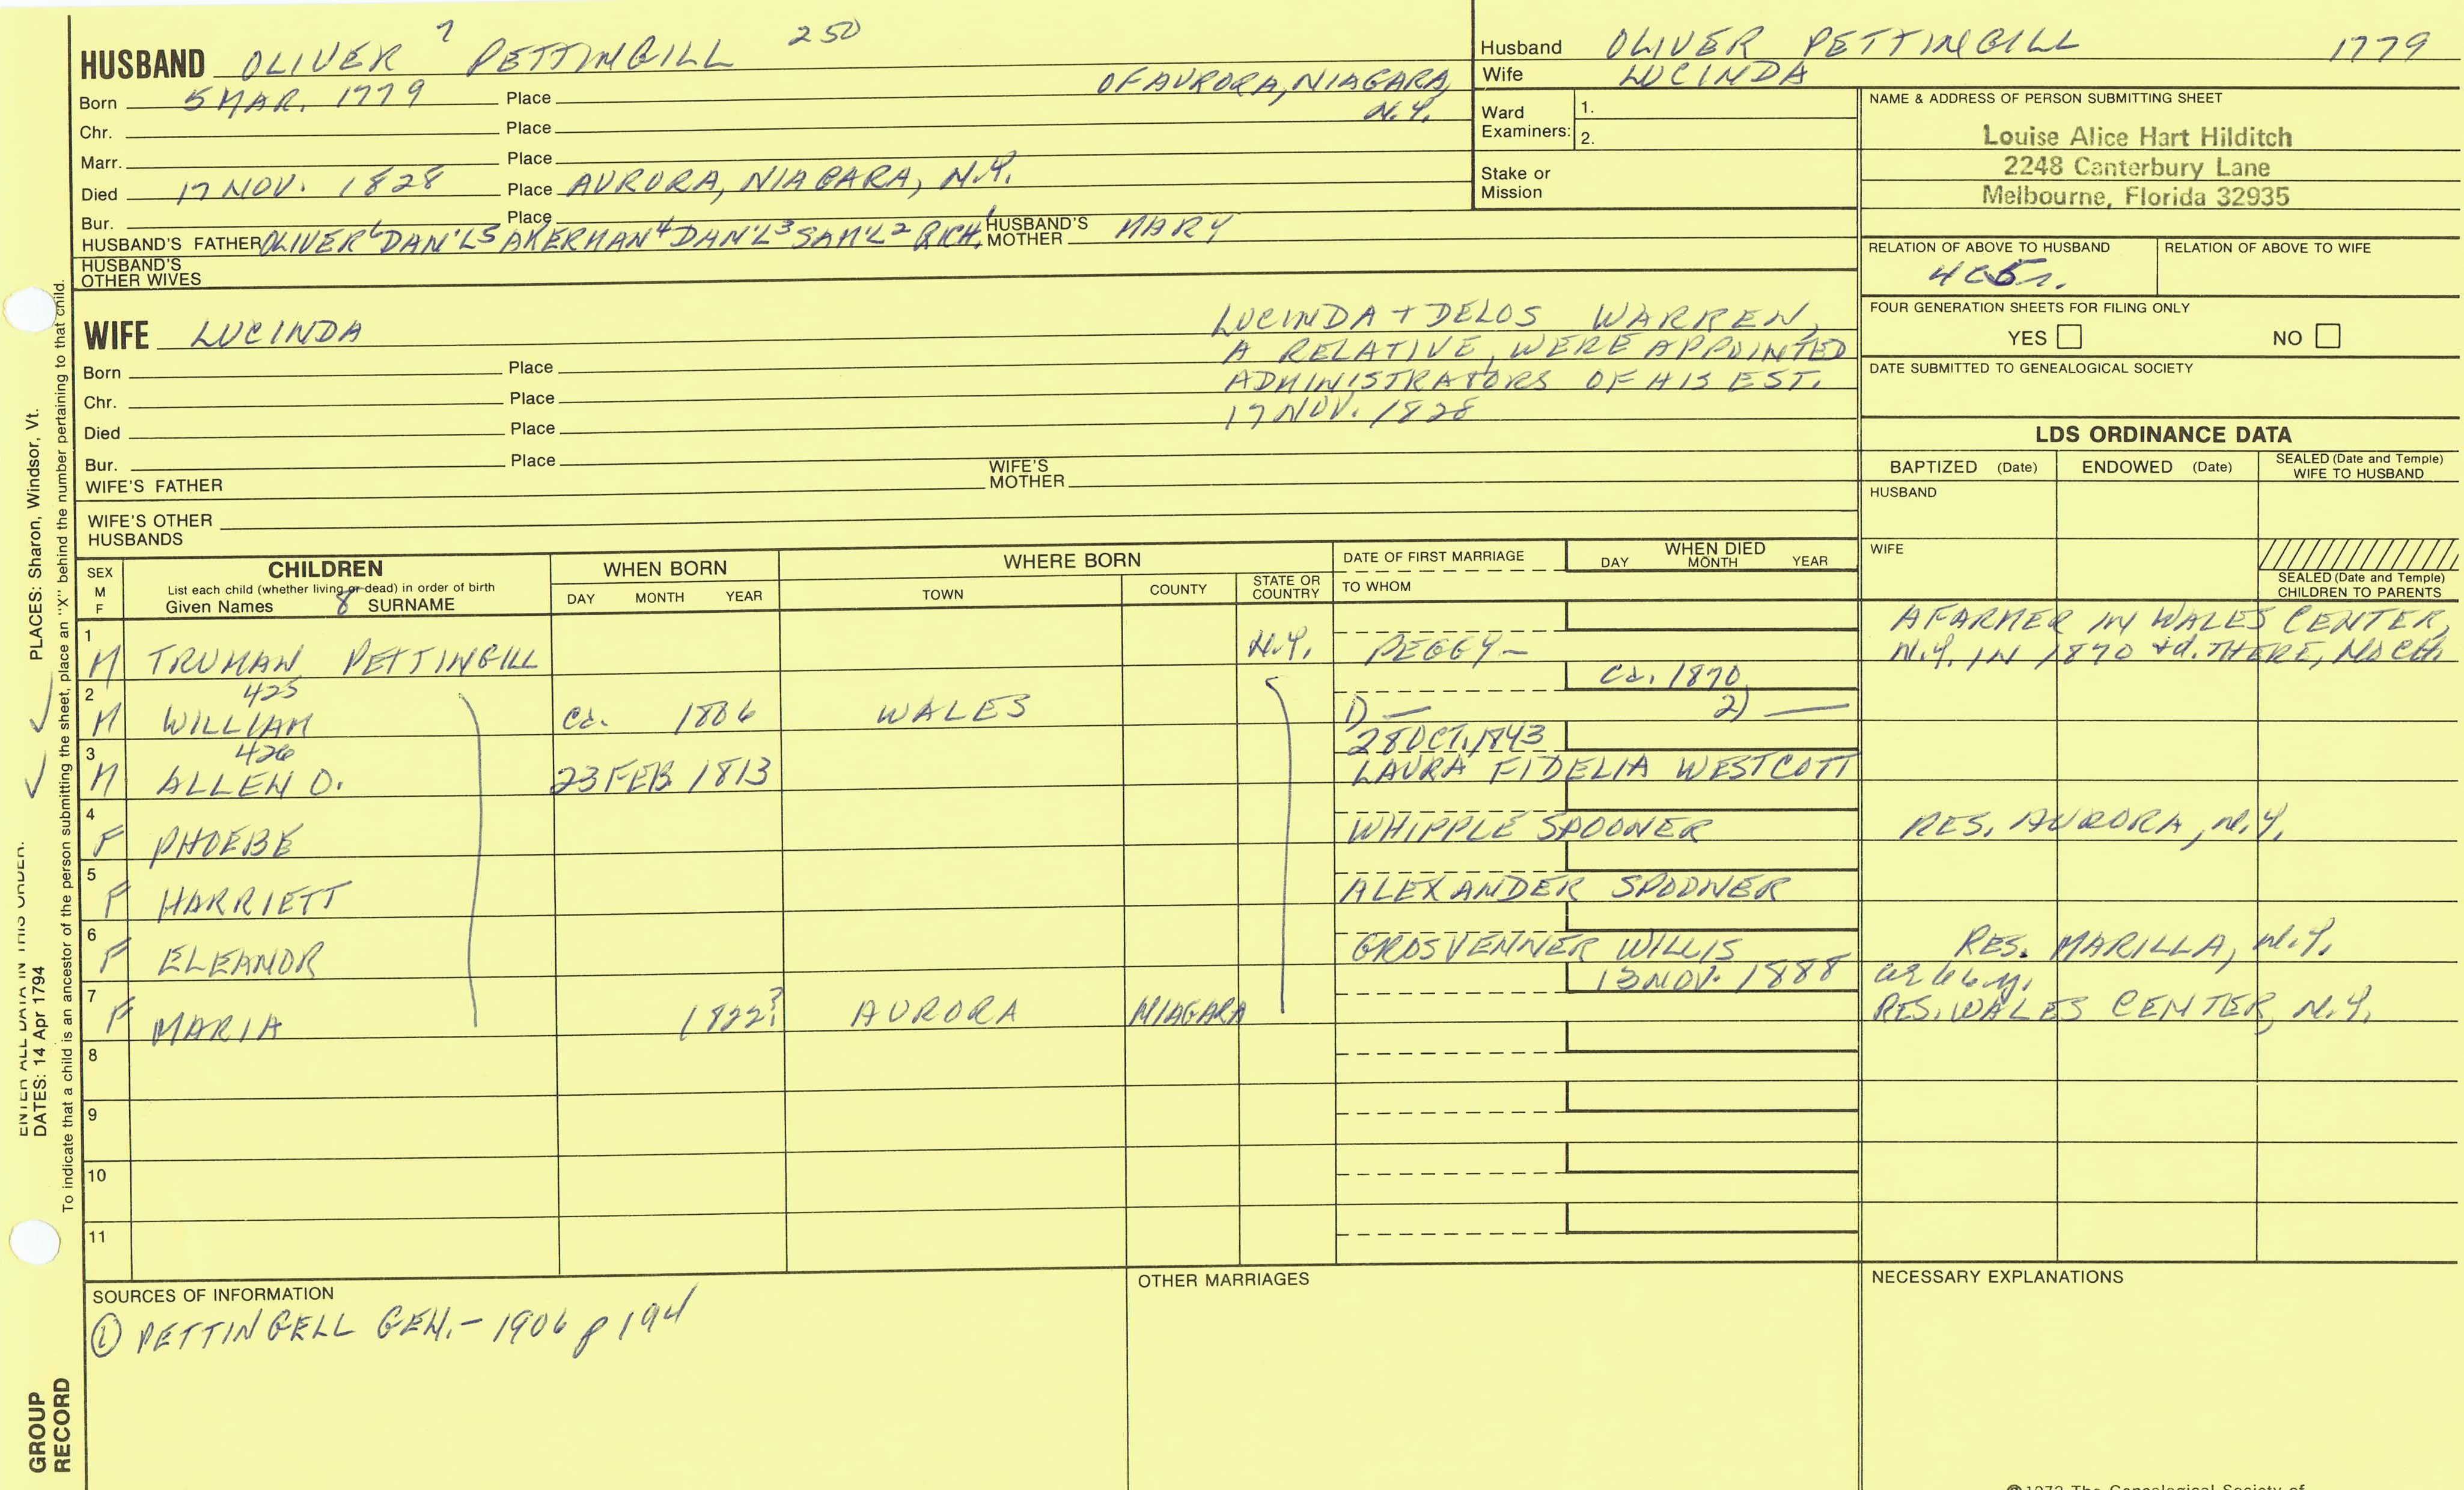 HUSBAND OLIVER 7 PETTINGILL 250
Born 5 MAR. 1779 Place OF AURORA, NIAGARA, N.Y.
Chr. Place
Marr. Place
Died 17 NOV. 1828 Place AURORA, NIAGARA, N.Y.
Bur. Place
HUSBAND'S FATHER OLIVER 6 DAN'L 5 AKERMAN 4 DAN'L 3 SAM'L 2 RICH. 1 HUSBAND'S MOTHER MARY
HUSBAND'S OTHER WIVES
Husband OLIVER PETTINGILL 1779
Wife LUCINDA
Ward Examiners: 1.
2.
Stake or Mission
NAME & ADDRESS OF PERSON SUBMITTING SHEET
Louise Alice Hart Hilditch
2248 Canterbury Lane
Melbourne, Florida 32935
RELATION OF ABOVE TO HUSBAND RELATION OF ABOVE TO WIFE
4C5r.
FOUR GENERATION SHEETS FOR FILING ONLY
YES NO
DATE SUBMITTED TO GENEALOGICAL SOCIETY
WIFE LUCINDA
LUCINDA + DELOS WARREN,
A RELATIVE, WERE APPOINTED
ADMINISTRATORS OF HIS EST.
17 NOV. 1828
Born Place
Chr. Place
Died Place
Bur. Place
WIFE'S FATHER WIFE'S MOTHER
WIFE'S OTHER HUSBANDS
LDS ORDINANCE DATA
BAPTIZED (Date) ENDOWED (Date) SEALED (Date and Temple) WIFE TO HUSBAND
HUSBAND
WIFE
SEALED (Date and Temple) CHILDREN TO PARENTS
SEX M F CHILDREN WHEN BORN WHERE BORN DATE OF FIRST MARRIAGE WHEN DIED
List each child (whether living or dead) in order of birth
Given Names 8 SURNAME DAY MONTH YEAR TOWN COUNTY STATE OR COUNTRY TO WHOM DAY MONTH YEAR
1 M TRUMAN PETTINGILL N.Y. PEGGY — A FARMER IN WALES CENTER,
N.Y. IN 1870 + d. THERE, NO CH.
2 M 425 WILLIAM Ca. 1806 WALES 1) — 2) — Ca. 1870
3 M 426 ALLEN O. 23 FEB 1813 28 OCT. 1843 LAURA FIDELIA WESTCOTT
4 F PHOEBE WHIPPLE SPOONER RES. AURORA, N.Y.
5 F HARRIETT ALEXANDER SPOONER
6 F ELEANOR GROSVENNER WILLIS RES. MARILLA, N.Y.
7 F MARIA 1822? AURORA NIAGARA 13 NOV. 1888 ae 66 y.
RES. WALES CENTER, N.Y.
8
9
10
11
SOURCES OF INFORMATION
① PETTINGELL GEN. – 1906 p 194
OTHER MARRIAGES
NECESSARY EXPLANATIONS
PLACES: Sharon, Windsor, Vt.
ENTER ALL DATA IN THIS ORDER:
DATES: 14 Apr 1794
To indicate that a child is an ancestor of the person submitting the sheet, place an "X" behind the number pertaining to that child.
GROUP RECORD